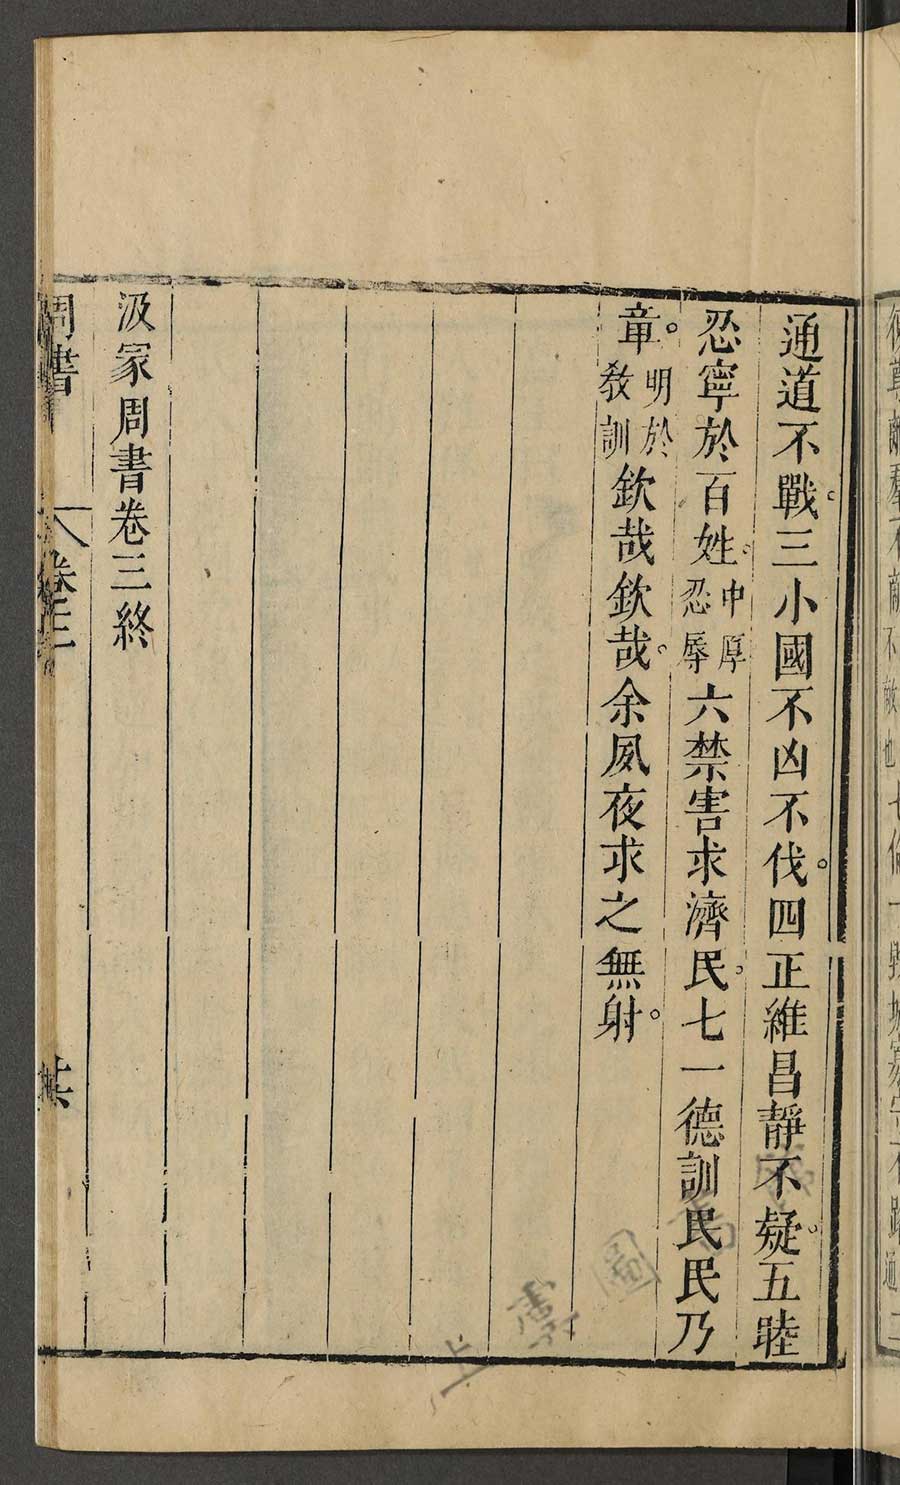 通道不戰三小國不凶不伐四正維昌靜不疑五睦
忍寧於百姓中厚忍辱六禁害求濟民七一德訓民民乃
章明於教訓欽哉欽哉余夙夜求之無射
汲冢周書卷三終
周書 卷三